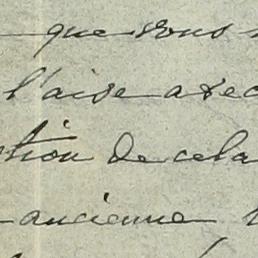 que vous
l'aise avec
tion de cela
ancienne